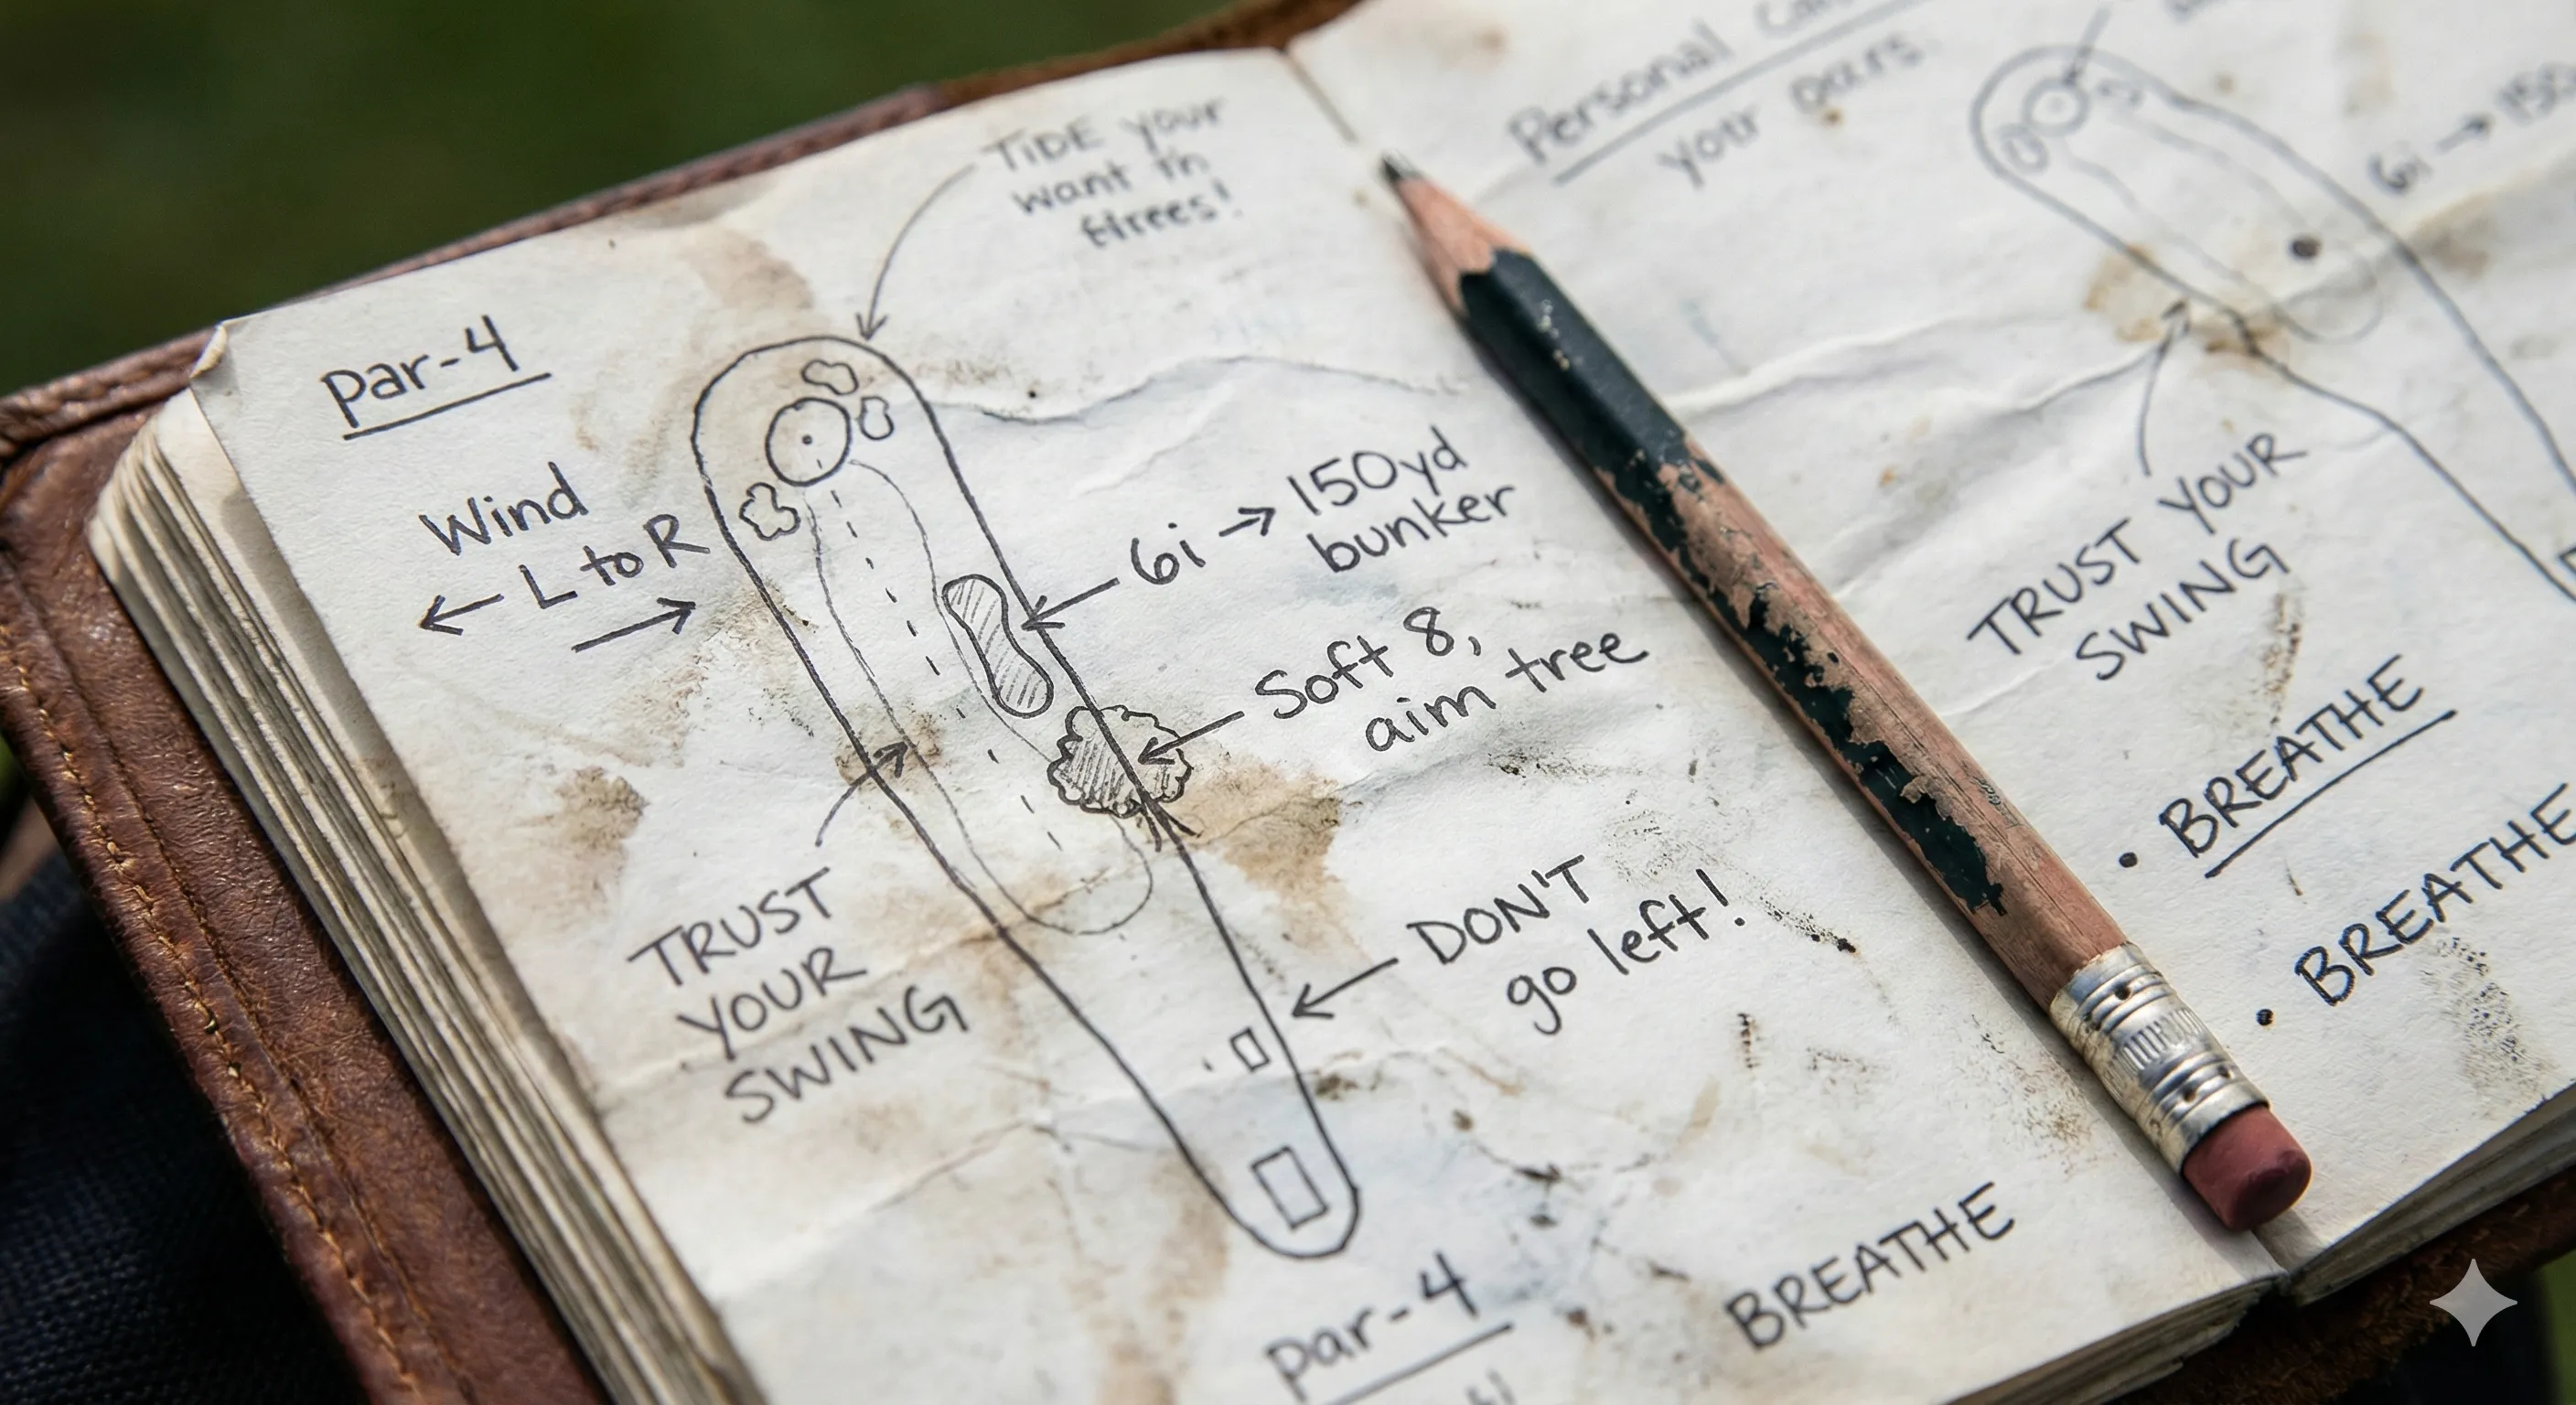 TIDE your
want th
ttrees!
par-4
Wind
L to R
6i → 150yd
bunker
Soft 8,
aim tree
TRUST
YOUR
SWING
DON'T
go left!
par-4
BREATHE
Personal
your pars
6i → 150
TRUST YOUR
SWING
• BREATHE
• BREATHE